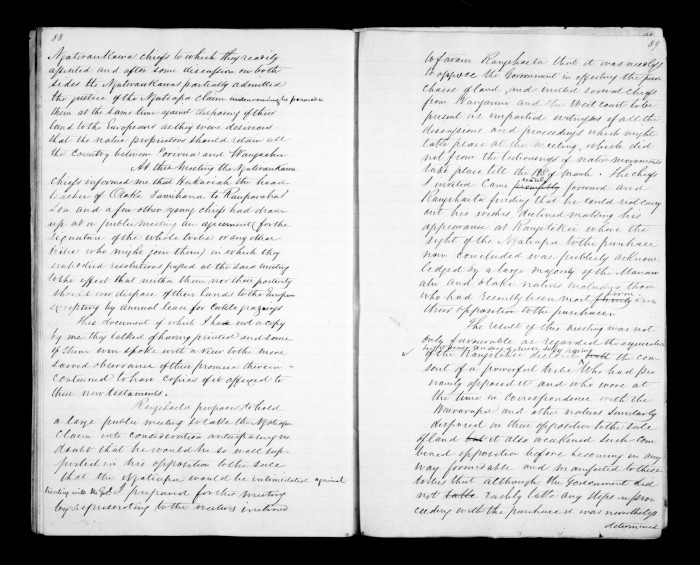 88
Ngatiraukawa chiefs to which they readily
assented and after some discussion on both
sides the Ngatiraukawas partially admitted
the justice of the Ngatiapa claim
them at the same time against disposing of their
land to the Europeans as they were desirous
that the native proprietors should retain all
the Country between Porirua and Wangaehu
At this Meeting the Ngatiraukawa
Chiefs informed me that the head
Teacher of Otaki Tamihana te Rauparahas
Son and a few other young chiefs had drawn
up at a public meeting an agreement (for the
signature of the whole tribe or any other
tribe who might join them) in which they
embodied resolutions passed at the said meeting
to the effect that neither them nor their posterity
should ever dispose of their lands to the Europeans
excepting by annual lease for cattle grazing
This document of which I have not a copy
by me they talked of having printed and some
of them even spoke with a view to the more
sacred observance of their promise therein
contained to have copies of it affixed to
their new testaments.
Rangihaeta proposed to hold
a large public meeting to take the Ngatiapa
Claim into consideration anticipating no
doubt that he would be so well sup-
ported in his opposition to the sale
that the Ngatiapa would be intimidated against
treating with the Govt. I prepared for this meeting
by representing to the natives inclined
89
to favour Rangihaeta that it was needless
to oppose the Government in effecting the pur
chase of land, and invited several chiefs
from Wanganui and the West coast to be
present as impartial witnesses of all the
discussions and proceedings which might
take place at the meeting, which did
not from the tediousness of native movements
take place till the of March. The chiefs
I invited Came readily forward and
Rangihaeta finding that he could not carry
out his wishes, declined making his
appearance at Rangitikei where the
right of the Ngatiapa to the purchase
now concluded was publicly acknow
ledged by a large majority of the Manaw
atu and Otaki natives including those
who had recently been most firm in
their opposition to the purchase.
The result of this meeting was not
only favourable as regarded the acquisition
of the Rangitikei district the con
sent of a powerful tribe who had pre
viously opposed it and who were at
the time in Correspondence with the
Wairarapa and other natives similarly
disposed in their opposition to the sale
of land it also weakened such com
bined opposition before becoming in any
way formidable and manifested to these
tribes that although the Government did
not rashly take any steps in pro
ceeding with the purchase it was nevertheless
determined